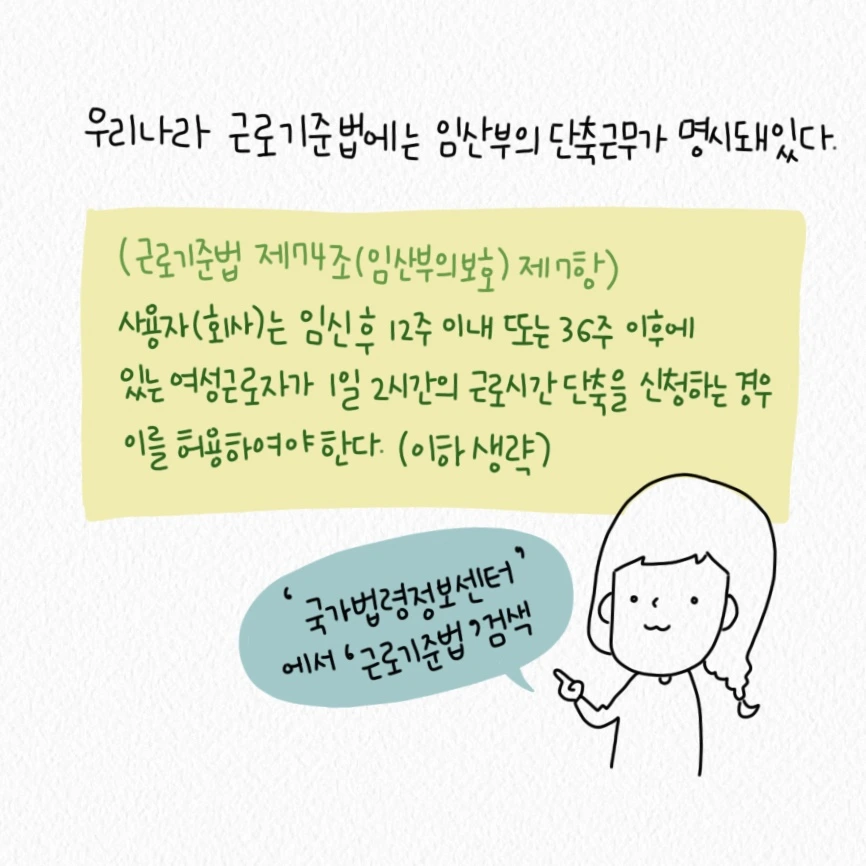 우리나라 근로기준법에는 임산부의 단축근무가 명시돼있다.
(근로기준법 제74조(임산부의보호) 제7항)
사용자(회사)는 임신 후 12주 이내 또는 36주 이후에
있는 여성근로자가 1일 2시간의 근로시간 단축을 신청하는 경우
이를 허용하여야 한다. (이하 생략)
'국가법령정보센터'
에서 '근로기준법' 검색